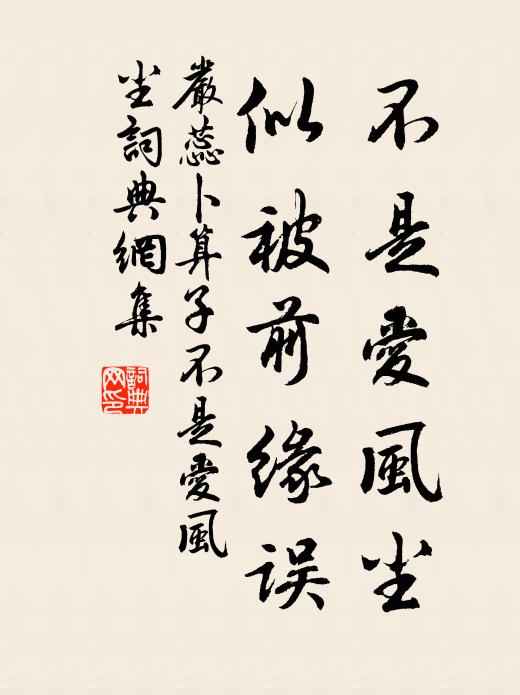 不是愛風尘
似被前緣误
嚴蕊卜算子不是愛風
尘詞典網集
詞典
网印